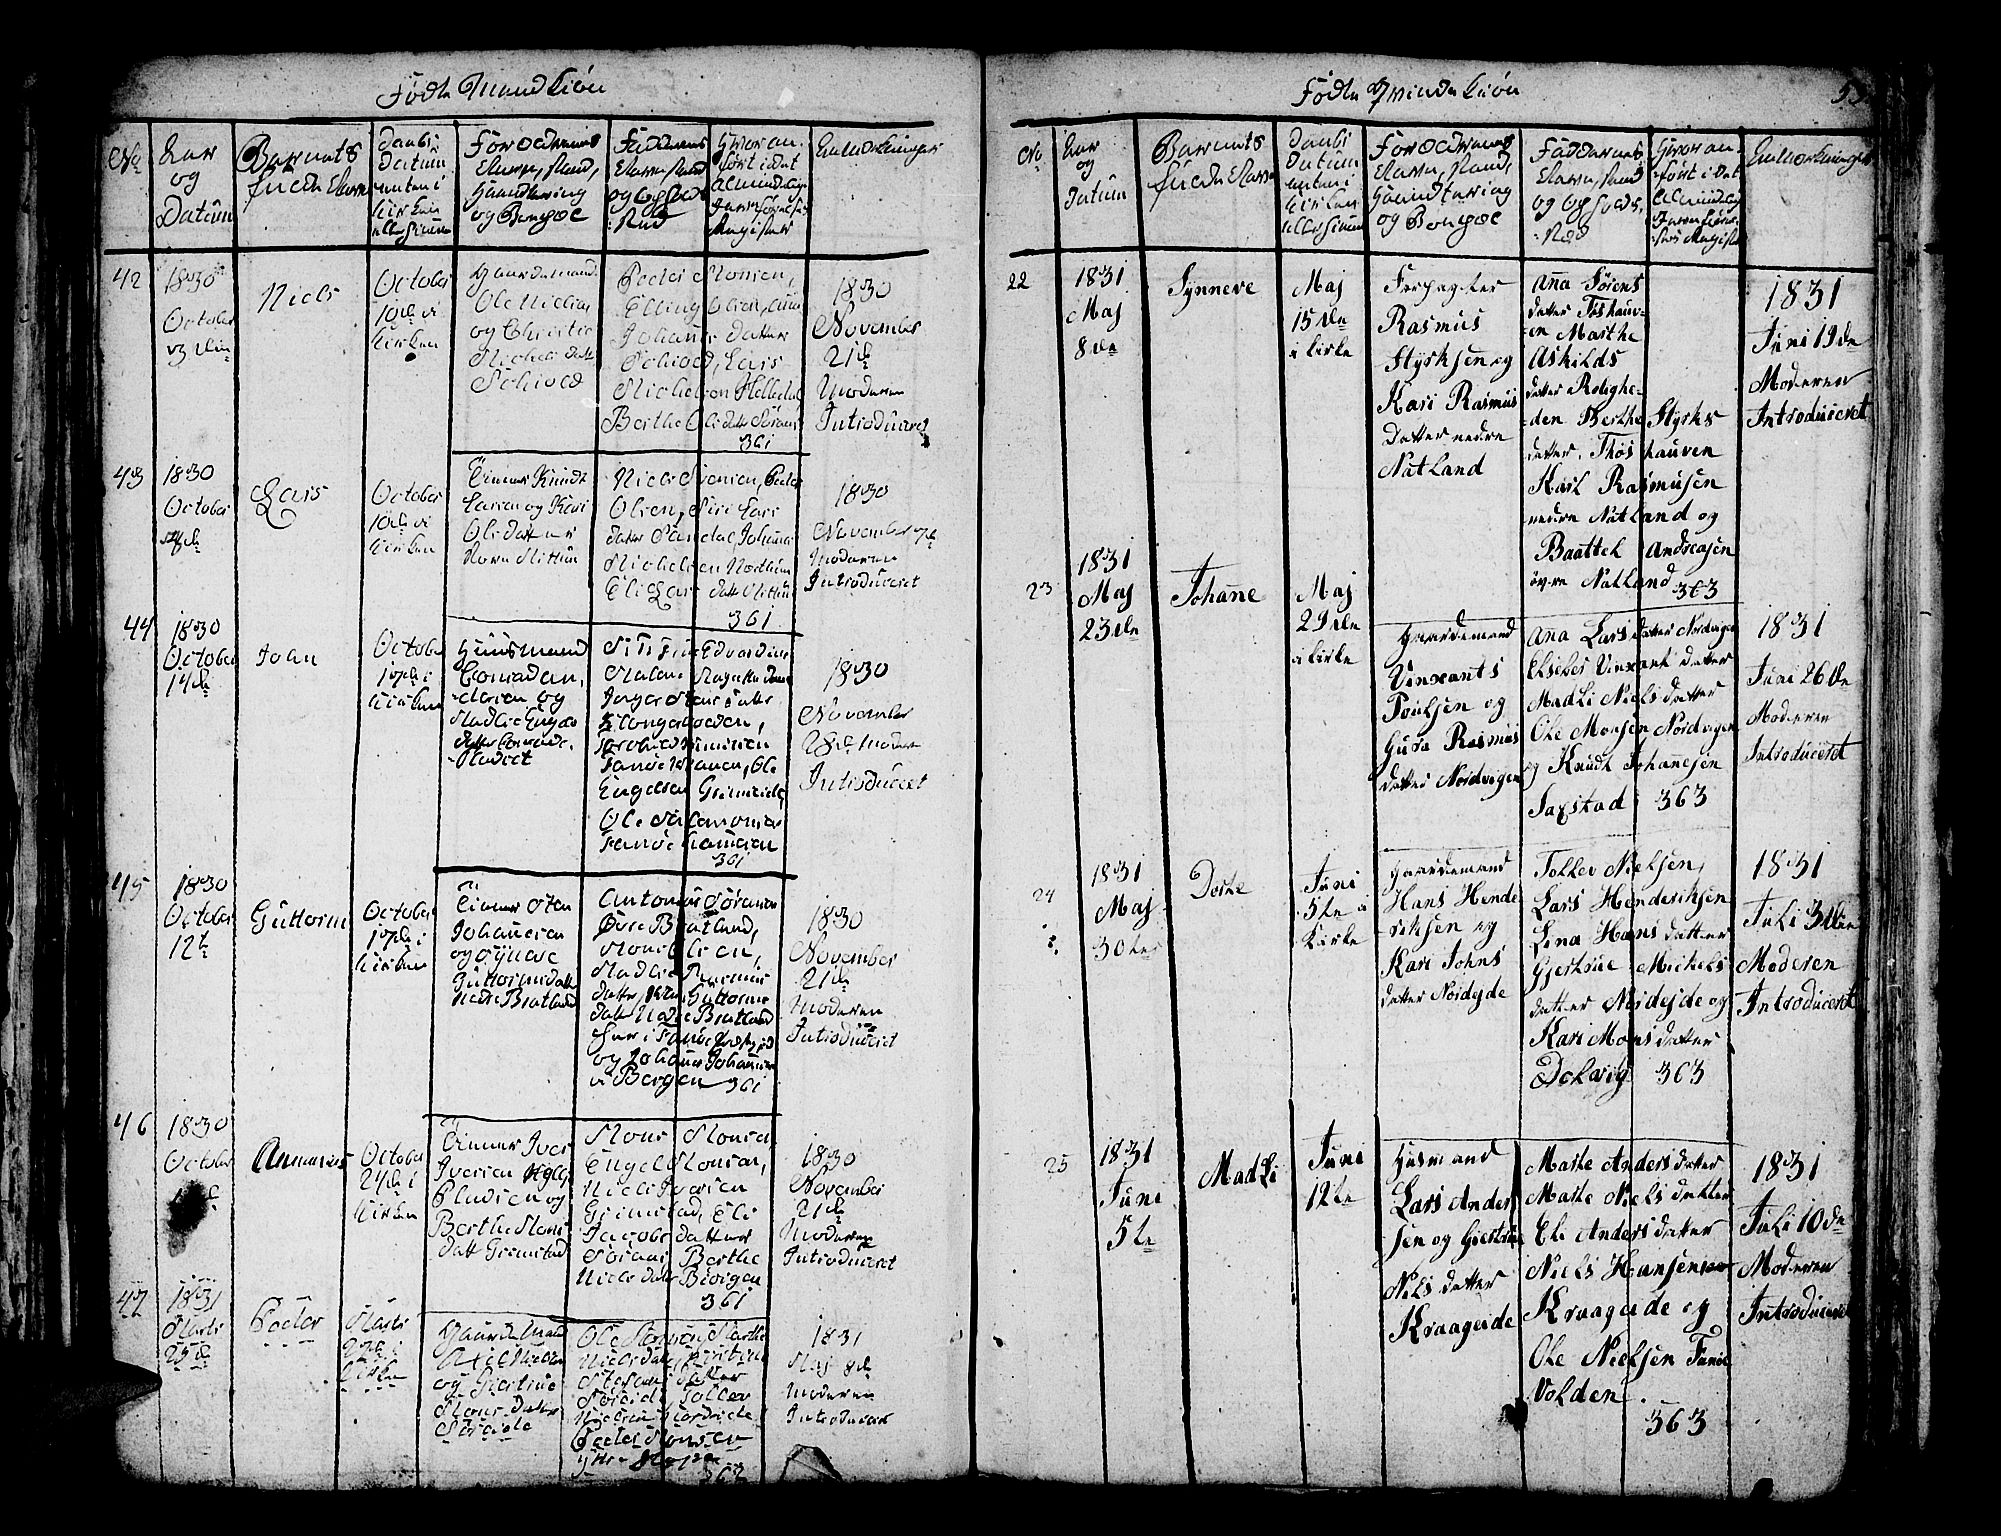 Fødte Mandkiøn
No
Aar
og
Datum
Barnets
fulde Navn
Daabs
Datum
enten i
Kirken
eller hiemme
Forældrenes
Navn, Stand,
Haandtering
og Bopæl
Faddernes
Navn, Stand
og Opholds
Sted
Hvor an-
ført i det
Almindelige
Jævnførelses
Register
Anmærkninger
42
1830
October
3die
Niels
October
10de i
Kirken
Gaardemand
Ole Nielsen
og Christie
Michels datt
Søhvoed
Peeter Monsen,
Elling Olsen, Anne
Johannes datter
Søhvoed, Lars
Michelsen Hellesøe
Berthe Olsdatt
361
1830
November
21de
Moderen
Introduceret
43
1830
October
Lars
October
10de i
Kirken
Tinner Knudt
Larsen og Kari
Olsdatter
Nore
Niels Svensen, Peeder
Olsen, Siri Lars
datter Sandal, Johannes
Michelsen
Eli Lars datt
361
1830
November 7de
Moderen
Introduceret
44
1830
October
14de
John
October
17de i
Kirken
Huusmand
Conrad An-
dersen og
Madlie Engels
datter
361
1830
November
28de Moderen
Introduceret
45
1830
October
12te
Guttorm
October
17de i
Kirken
Tinner Sten
Johannesen
og Synneve
Guttormsdatt
Nedre Bratland
Antonius Sørensen
Øvre Bratland,
Mons Olsen,
Madlie Rasmus
datter, Guttorms
datt Nedre Bratland
og Johannes Johannesen
i Bergen 361
1830
November
21de
Moderen
Introduceret
46
1830
October
Ananias
October
24de i
Kirken
Tinner Iver
Iversen
og
Berthe Mons
datt Grimstad
Mons Monsen
Engel Monsen,
Niels Iversen
Grimstad, Eli
Jacobs datter
Berthe
Niels datter
361
1830
November
21de
Moderen
Introduceret
47
1831
Marts
25de
Peeder
Marts
27de i
Kirken
Gaardemand
Axel Nielsen
og Giertrue
Mons datter
Søreide
Ole Monsen, Marthe
Niels datt, Kirsten
datter
Søreide, Tollev
Nielsen Nordeide
Peeder Monsen
Ytre
362
1831
Maj 8de
Moderen
Introduceret
Fødte Qvindekiøn
53
No
Aar
og
Datum
Barnets
fulde Navn
Daabs
Datum
enten i
Kirken
eller hiemme
Forældrenes
Navn, Stand,
Haandtering
og Bopæl
Faddernes
Navn, Stand
og Opholds
Sted
Hvor an-
ført i det
Almindelige
Jævnførel-
ses Register
Anmærkninger
22
1831
Maj
8de
Synneve
Maj
15de
i Kirke
Forpagter
Rasmus
Styrksen og
Kari Rasmus
datter nedre
Natland
Ana Sørens
datter Toskauv-
en Marthe
Askilds
datter Rolighe-
den Berthe Styrks
datter, Thoskauven
Karl Rasmusen
nedre Natland og
Baattel Andreasen
øvre Natland 363
1831
Juni 19de
Moderen
Introduceret
23
1831
Maj
23de
Johane
Maj
29de
i Kirke
Gaardemand
Vinxants
Poulsen og
Gura Rasmus
datter Nordvigen
Ana Lars datter Nordvigen
Elsebe Vinxants datter
MadLi Niels datter
Ole Monsen Nordvigen
og Knudt Johanesen
Saxstad 363
1831
Juni 26de
Moderen
Introduceret
24
1831
Maj
30te
Dorte
Juni
5te i
Kirke
Gaardemand
Hans Hende
riksen og
Kari Johns
datter Nordejde
Tollev Nielsen,
Lars Henderiksen
Lina Hans datter
Gjertrue Mickels
datter Nordejde og
Kari Mons datter
Dolvig 363
1831
Juli 3die
Moderen
Introduceret
25
1831
Juni
5te
MadLi
Juni
12te
Husmand
Lars Ander
sen og Giertrue
Nils datter
Kraageide
Marte Anders datter
Marte Niels datter
Eli Anders datter
Niels Hansen
Kraageide og
Ole Nielsen Fanøe
Volden
363
1831
Juli 10de
Moderen
Introduceret